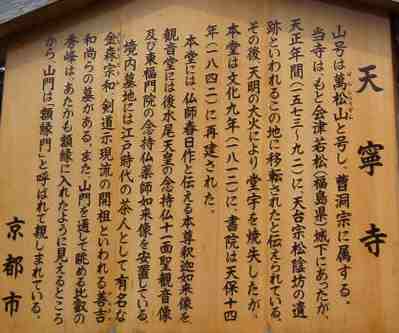 天寧寺
山号は萬松山と号し、曹洞宗に属する。
当寺は、もと会津若松(福島県)城下にあったが、
天正年間(一五七三〜九二)に、天台宗松陰坊の遺
跡といわれるこの地に移転されたと伝えられている。
その後、天明の大火により堂宇を焼失したが、
本堂は文化九年(一八一二)に、書院は天保十四
年(一八四二)に再建された。
本堂には、仏師春日作と伝える本尊釈迦如来像を
観音堂には後水尾天皇の念持仏十一面聖観音像
及び東福門院の念持仏薬師如来像を安置している。
境内墓地には江戸時代の茶人として有名な
金森宗和、剣道示現流の開祖といわれる善吉
和尚らの墓がある。また、山門を通して眺める比叡の
秀峰は、あたかも額縁に入れたように見えるところ
から、山門は「額縁門」と呼ばれて親しまれている。
京都市